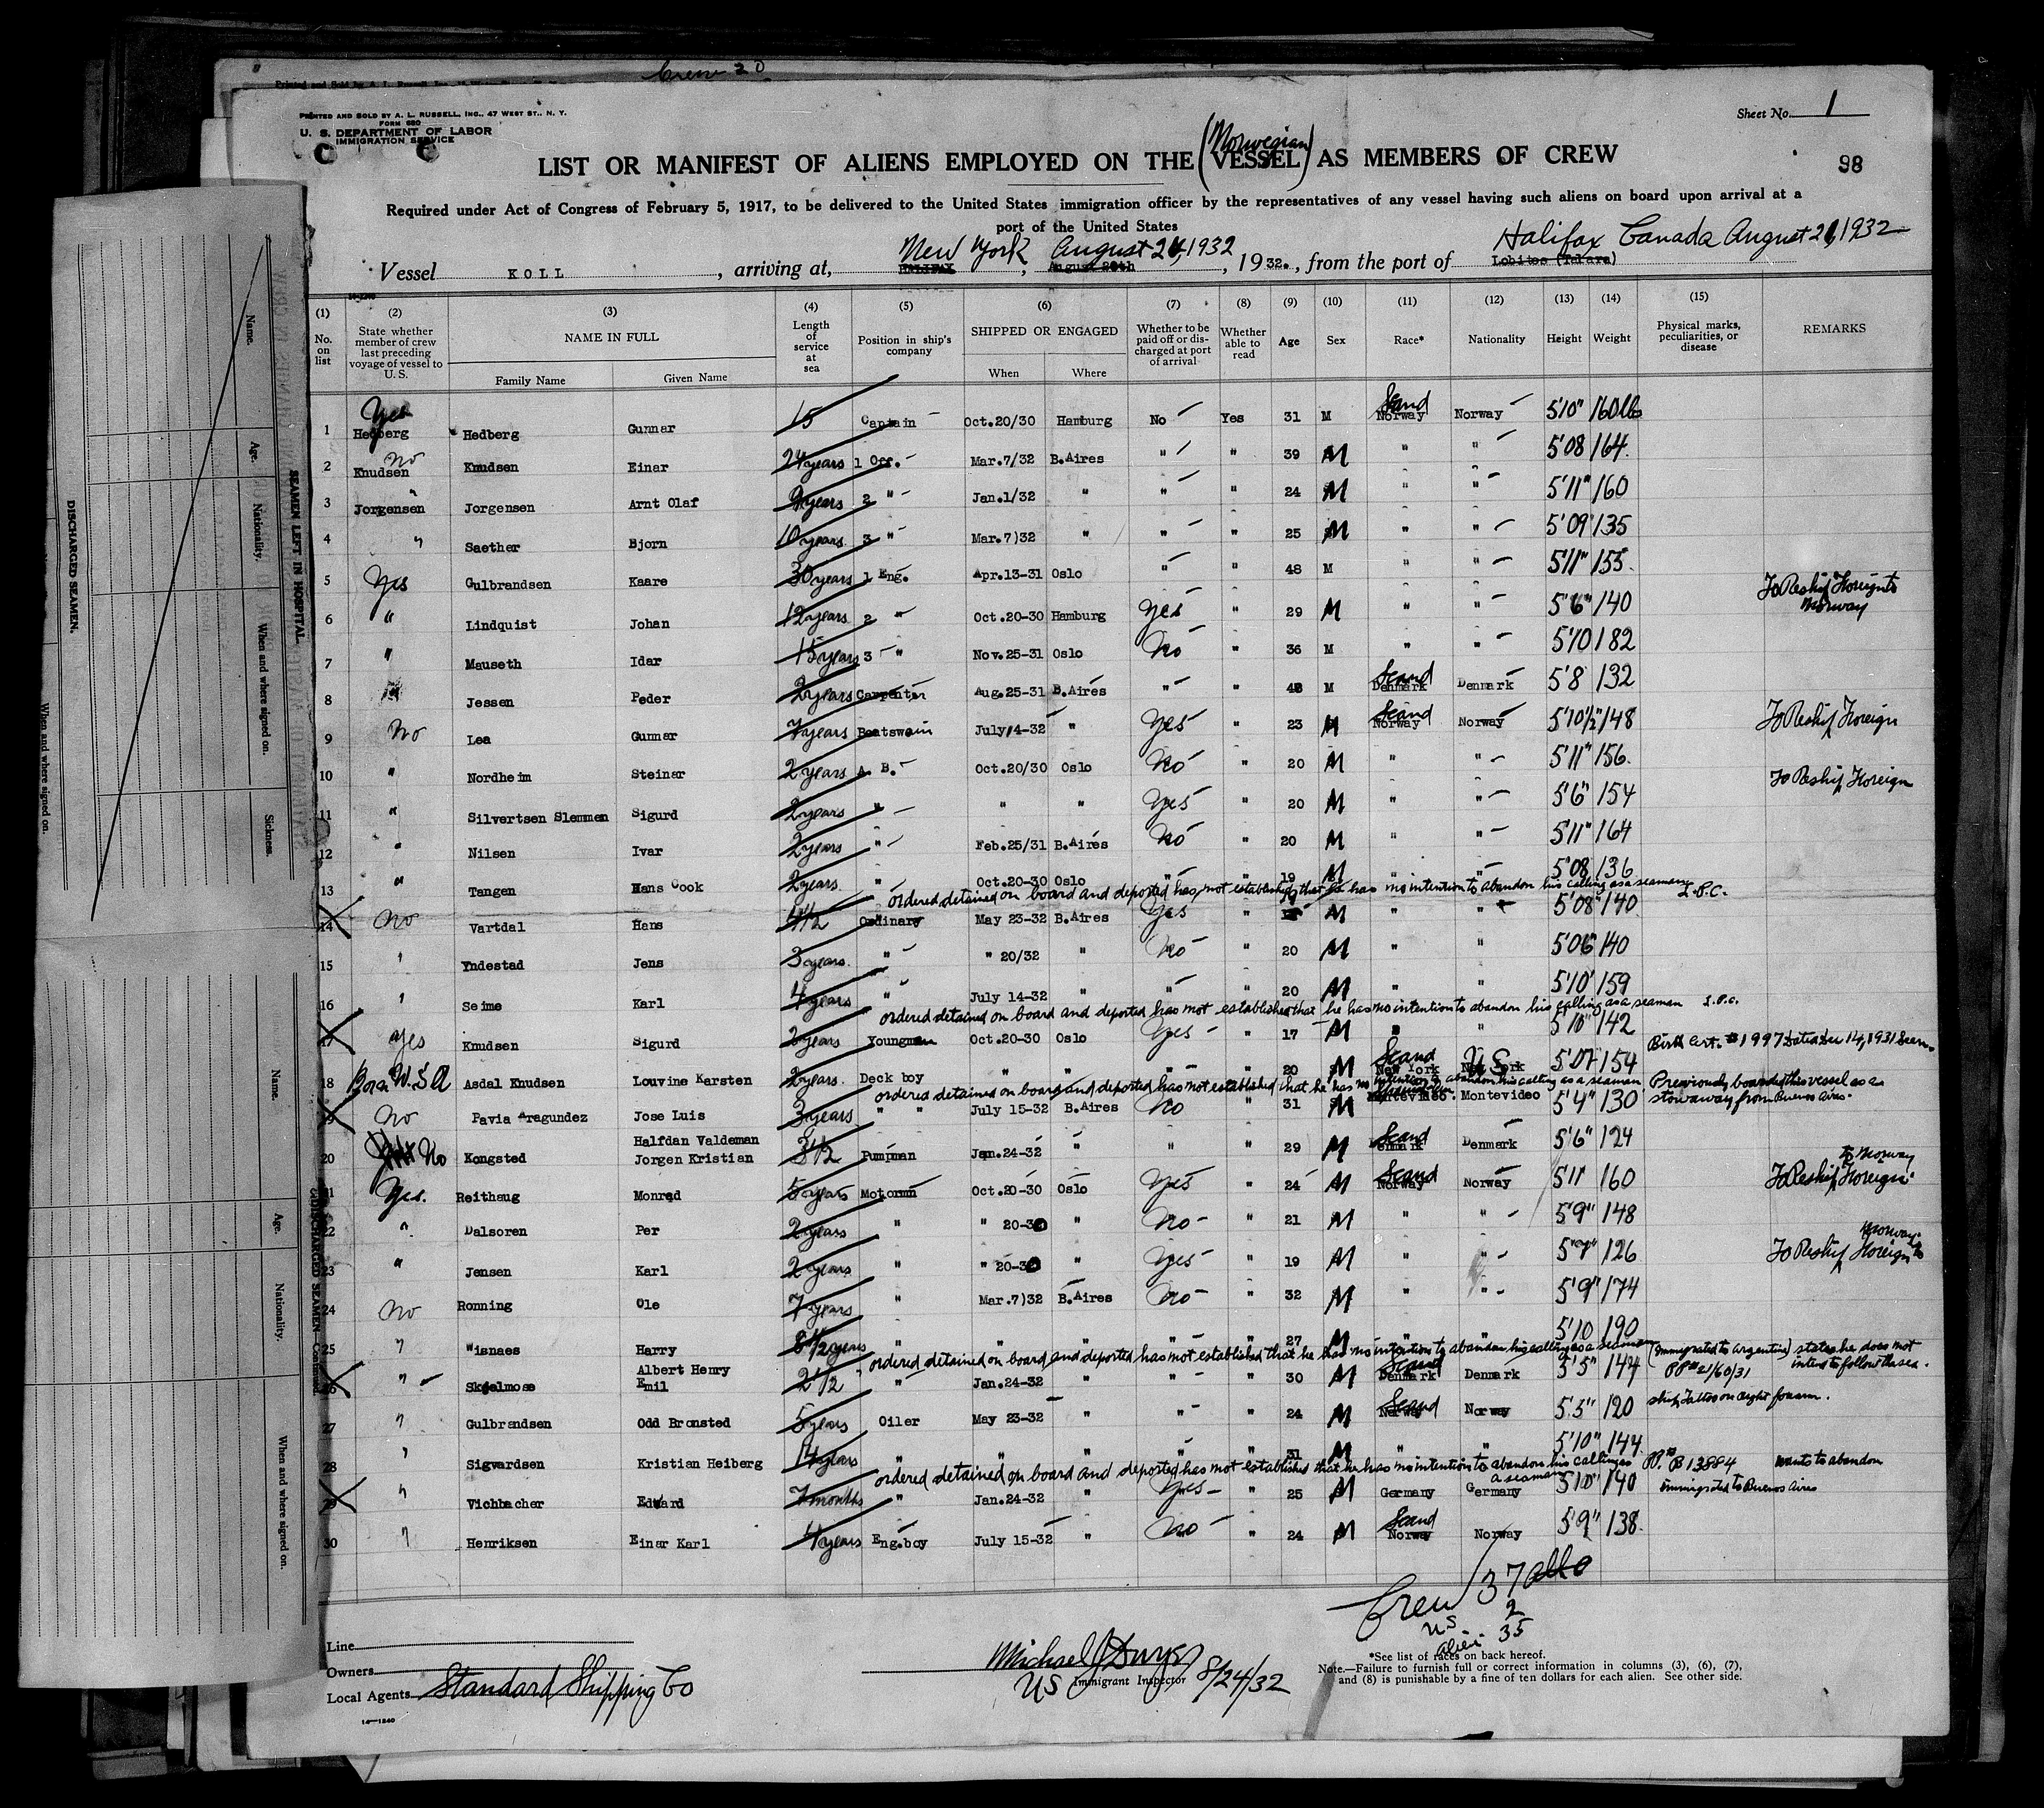 Crew 20
PRINTED AND SOLD BY A. L. RUSSELL, INC., 47 WEST ST., N. Y.
FORM 680
U. S. DEPARTMENT OF LABOR
IMMIGRATION SERVICE
Sheet No. 1
98
LIST OR MANIFEST OF ALIENS EMPLOYED ON THE (Norwegian VESSEL) AS MEMBERS OF CREW
Required under Act of Congress of February 5, 1917, to be delivered to the United States immigration officer by the representatives of any vessel having such aliens on board upon arrival at a
port of the United States
New York August 24, 1932 Halifax Canada August 21, 1932
Vessel KOLL, arriving at, HALIFAX, August 20th, 1932., from the port of Lobitos (Talara)
14-1240
(1) (2) (3) (4) (5) (6) (7) (8) (9) (10) (11) (12) (13) (14) (15)
No. on list State whether member of crew last preceding voyage of vessel to U.S. NAME IN FULL Length of service at sea Position in ship's company SHIPPED OR ENGAGED Whether to be paid off or discharged at port of arrival Whether able to read Age Sex Race* Nationality Height Weight Physical marks, peculiarities, or disease REMARKS
Family Name Given Name When Where
1 Yes Hedberg Hedberg Gunnar 15 Captain Oct.20/30 Hamburg No Yes 31 M Scand Norway Norway 5'10" 160 lbs
2 No Knudsen Knudsen Einar 24 years 1 Off. Mar.7/32 B.Aires " " 39 M " " 5'08 164.
3 " Jorgensen Jorgensen Arnt Olaf 9 years 2 " Jan.1/32 " " " 24 M " " 5'11" 160
4 " Saether Bjorn 10 years 3 " Mar.7)32 " " " 25 M " " 5'09" 135
5 Yes Gulbrandsen Kaare 30 years 1 Eng. Apr.13-31 Oslo " " 48 M " " 5'11" 155.
6 " Lindquist Johan 12 years 2 " Oct.20-30 Hamburg Yes " 29 M " " 5'6" 140 To Reship Foreign to Norway
7 " Mauseth Idar 15 years 3 " Nov.25-31 Oslo No " 36 M " " 5'10 182
8 " Jessen Peder 2 years Carpenter Aug.25-31 B.Aires " " 48 M Scand Denmark Denmark 5'8 132
9 No Lea Gunnar 7 years Boatswain July 14-32 " Yes " 23 M Scand Norway Norway 5'10½" 148 To Reship Foreign
10 " Nordheim Steinar 2 years A. B. Oct.20/30 Oslo No " 20 M " " 5'11" 156.
11 " Silvertsen Slemmen Sigurd 2 years " " " Yes " 20 M " " 5'6" 154 To Reship Foreign
12 " Nilsen Ivar 2 years " Feb.25/31 B.Aires No " 20 M " " 5'11" 164
13 " Tangen Hans Cook 2 years. " Oct.20-30 Oslo " " 19 M " " 5'08 136
ordered detained on board and deported has not established that he has no intention to abandon his calling as a seaman L.P.C.
14 No Vartdal Hans 4 1/2 Ordinary May 23-32 B.Aires Yes " 19 M " " 5'08" 140
15 " Yndestad Jens 3 years. " " 20/32 " No " 20 M " " 5'06" 140
16 " Seime Karl 4 years " July 14-32 " " " 20 M " " 5'10" 159
ordered detained on board and deported has not established that he has no intention to abandon his calling as a seaman L.P.C.
17 Yes Knudsen Sigurd 3 years Youngman Oct.20-30 Oslo Yes " 17 M " " 5'10" 142
Birth Cert. #1997 Dated Dec 14, 1931 Seen.
18 Born U.S.A Asdal Knudsen Louvine Karsten 2 years. Deck boy " " " " 20 M Scand New York U.S. New York 5'07 154
ordered detained on board and deported has not established that he has no intention to abandon his calling as a seaman Previously boarded this vessel as a
19 No Pavia Aragundez Jose Luis 3 years " " July 15-32 B.Aires No " 31 M Montevideo. Montevideo 5'4" 130 stowaway from Buenos Aires.
20 No Kongsted Halfdan Valdeman Jorgen Kristian 3 1/2 Pumpman Jan.24-32 " " " 29 M Scand Denmark Denmark 5'6" 124
21 Yes. Reithaug Monrad 5 years Motormn Oct.20-30 Oslo Yes " 24 M Scand Norway Norway 5'11 160 To Reship Foreign to Norway
22 " Dalsoren Per 2 years " " 20-30 " No " 21 M " " 5'9" 148
23 " Jensen Karl 2 years " " 20-30 " Yes " 19 M " " 5'7" 126 To Reship Foreign to Norway
24 No Ronning Ole 7 years " Mar.7)32 B.Aires No " 32 M " " 5'9" 174
25 " Wisnaes Harry 8 1/2 years " " " " " 27 M " " 5'10 190
ordered detained on board and deported has not established that he has no intention to abandon his calling as a seaman (Immigrated to Argentine) states he does not
26 " Skjelmose Albert Henry Emil 2 1/2 " Jan.24-32 " " " 30 M Scand Denmark Denmark 5'5" 144 PP# 21/60/31 intend to follow the sea.
27 " Gulbrandsen Odd Bronsted 5 years Oiler May 23-32 " " " 24 M Scand Norway Norway 5'5" 120 ship Tattoo on right forearm.
28 " Sigvardsen Kristian Heiberg 14 years " " " " " 31 M " " 5'10" 144
ordered detained on board and deported has not established that he has no intention to abandon his calling as a seaman PP.# B 13884 wants to abandon
29 " Vichbacher Edward 7 months " Jan.24-32 " Yes " 25 M Germany Germany 5'10" 140 immigrated to Buenos Aires
30 " Henriksen Einar Karl 4 years Eng.boy July 15-32 " No " 24 M Scand Norway Norway 5'9" 138.
Crew 37 all
US 2
alien 35
Line
Owners
Local Agents Standard Shipping Co
14—1240
Michael J Dwyer 8/24/32
US Immigrant Inspector
*See list of races on back hereof.
Note.—Failure to furnish full or correct information in columns (3), (6), (7),
and (8) is punishable by a fine of ten dollars for each alien. See other side.
DISCHARGED SEAMEN.
When and where signed on.
SEAMEN LEFT IN HOSPITAL.
Name. Age. Nationality. When and where signed on. Sickness.
DISCHARGED SEAMEN—Continued
Name. Age. Nationality. When and where signed on.